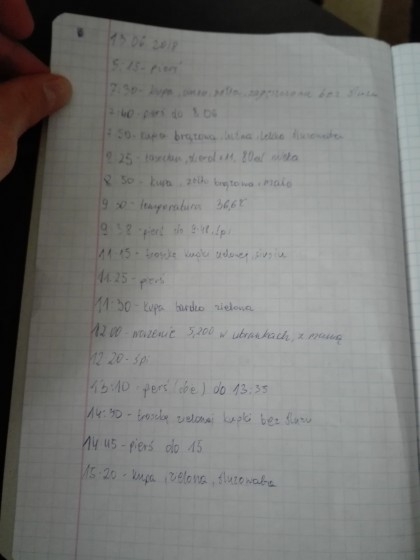 19.06.2018
5:15 - pierś
7:30 - kupa, żółta, bez śluzu
7:40 pierś do 8.06
kupka brązowa, luźna, lekko śluzowata
8:25 - 80ml mleka
8:50 - kupa, żółto brązowa, mało
9:30 - temperatura 36,6
9:38 - pierś do 9:48, śpi
11:15 - troszkę kupki zielonej
11:25 - pierś
11:30 - kupa bardzo zielona
12:00 - ważenie 5,200 w ubrankach, z mamą
12:20 - śpi
13:10 - pierś (dwie) do 13:35
14:30 - troszkę zielonej kupki bez śluzu
14:45 - pierś do 15
15:20 - kupa, zielona, śluzowata